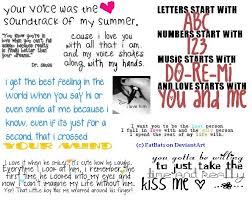 your voice was the
soundtrack of my summer.
You know you're in
love when you can't fall
asleep because reality
is finally better than
your dreams.
Dr. Seuss
cause i love you
with all that i am.
and my voice shakes
along with my hands.
LETTERS START WITH
ABC
NUMBERS START WITH
123
MUSIC STARTS WITH
DO-RE-MI
AND LOVE STARTS WITH
YOU and ME
i get the best feeling in the
world when you say hi or
even smile at me because i
know, even if its just for a
second, that i crossed
YOUR MIND
i love him
I want you to be the last person
I fall in love with and the only person
I spend the rest of my life with.
(c)FatBatson DeviantArt
I love it when he smiles. It's cute how he laughs.
Everytime I look at him, I remember the
first time he looked into my eyes and
now I can't imagine my life without him.
Yep! That little boy has me wrapped around his finger!
you gotta be willing
to just take the
time and really
kiss me